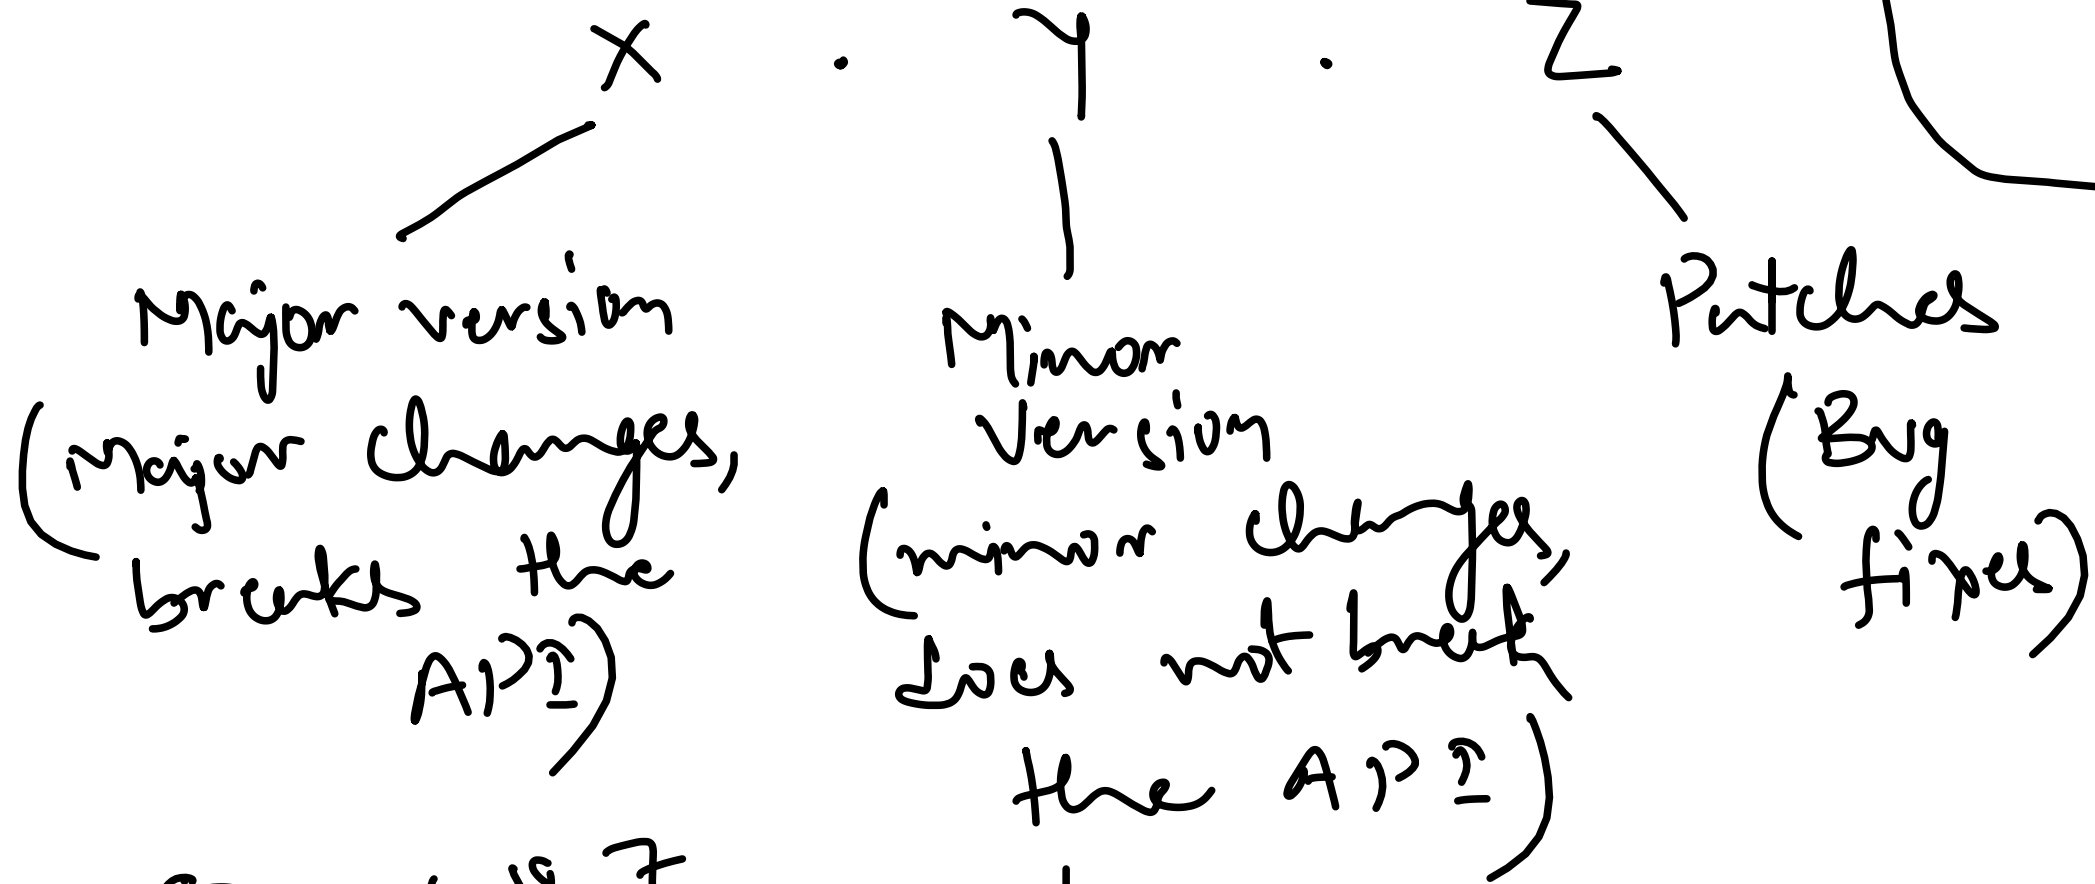 X . Y . Z
Major version
(Major changes,
breaks the
API)
Minor
Version
(minor changes,
Does not break
the API)
Patches
(Bug
fixes)